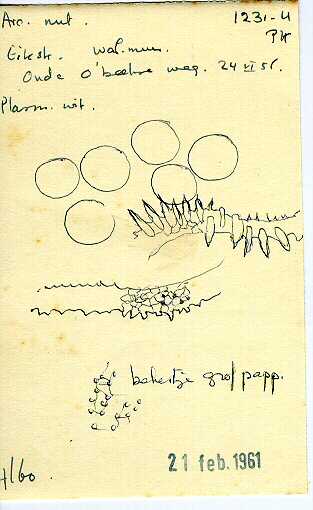 Arc. nut. 1231-4
Eikest. wal. mus.
Oude O'beekse weg. 24 VI 56.
Plasm. wit.
bekertje grof papp.
4/60.
21 feb. 1961